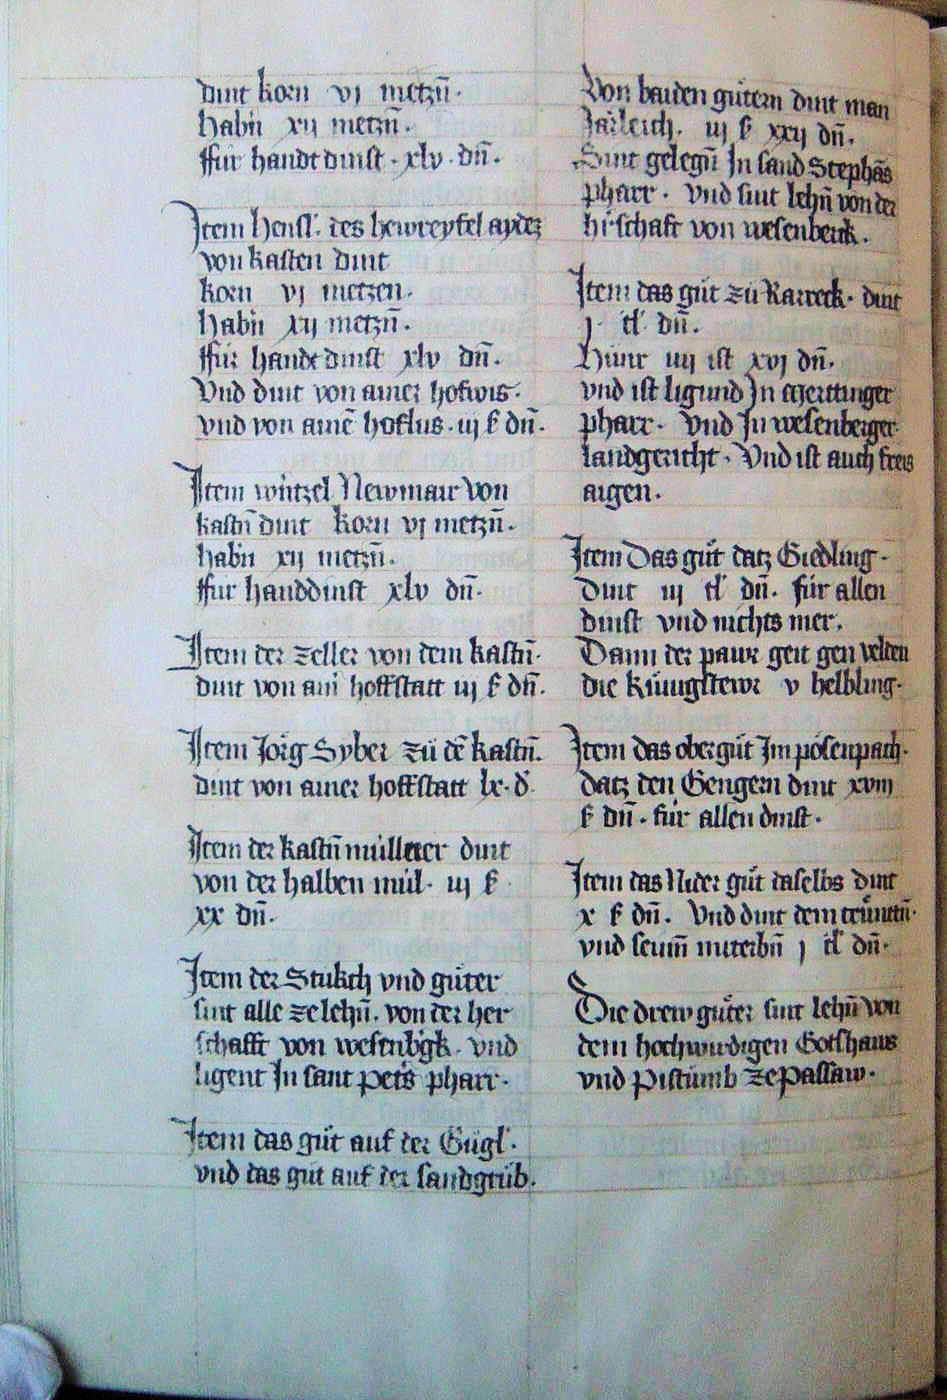 dint korn vj metzn̄.
habn̄ xij metzn̄.
ffür handtdinst. xlv. dn̄.
Item Hensl. des hewreysel aydez
von kasten dint
korn vj metzen.
habn̄ xij metzn̄.
ffür handtdinst xlv dn̄.
Vnd dint von ainer hofwis.
vnd von ainē hoflus. iij ß dn̄.
Item wützel Newmair von
kastn̄ dint korn vj metzn̄.
habn̄ xij metzn̄.
ffür handdinst xlv dn̄.
Item der zeller von dem kastn̄.
dint von ain̄ hoffstatt iij ß dn̄.
Item Jörg Syber zü dē kastn̄.
dint von ainer hoffstatt lx. d
Item der kastn̄ müllner dint
von der halben mül. iij ß
xx dn̄.
Item der Stukch vnd güter
sint alle ze lehn̄. von der her
schafft von wesenbgk. vnd
ligent In sant peters pharr.
Item das güt auf der Gügl.
vnd das güt auf der sandgrüb.
Von baiden gütern dint man
Järleich. iij ß xxij dn̄.
Sint gelegn̄ In sand Stephās
pharr. vnd sint lehn̄ von der
hrschaft von wesenberk.
Item das güt zü Rarreck. dint
j. tl dn̄.
Hünr iiij ist xvj dn̄.
vnd ist ligund In Merttinger
pharr. vnd In wesenberger
landgericht. Vnd ist auch freis
aigen.
Item Das güt datz Giedling.
Dint iij tl dn̄. für allen
dinst vnd nichts mer.
Dann der paur geit gen velden
die künigstewr v helbling.
Item das obergüt Im posenpach.
datz den Gengern dint xviij
ß dn̄. für allen dinst.
Item das Nider güt daselbs dint
x ß dn̄. Vnd dint dem
vnd seinn̄ miterbn̄ j tl dn̄.
Die drew güter sint lehn̄ von
dem hochwirdigen Gotshaus
vnd pistumb ze passaw.